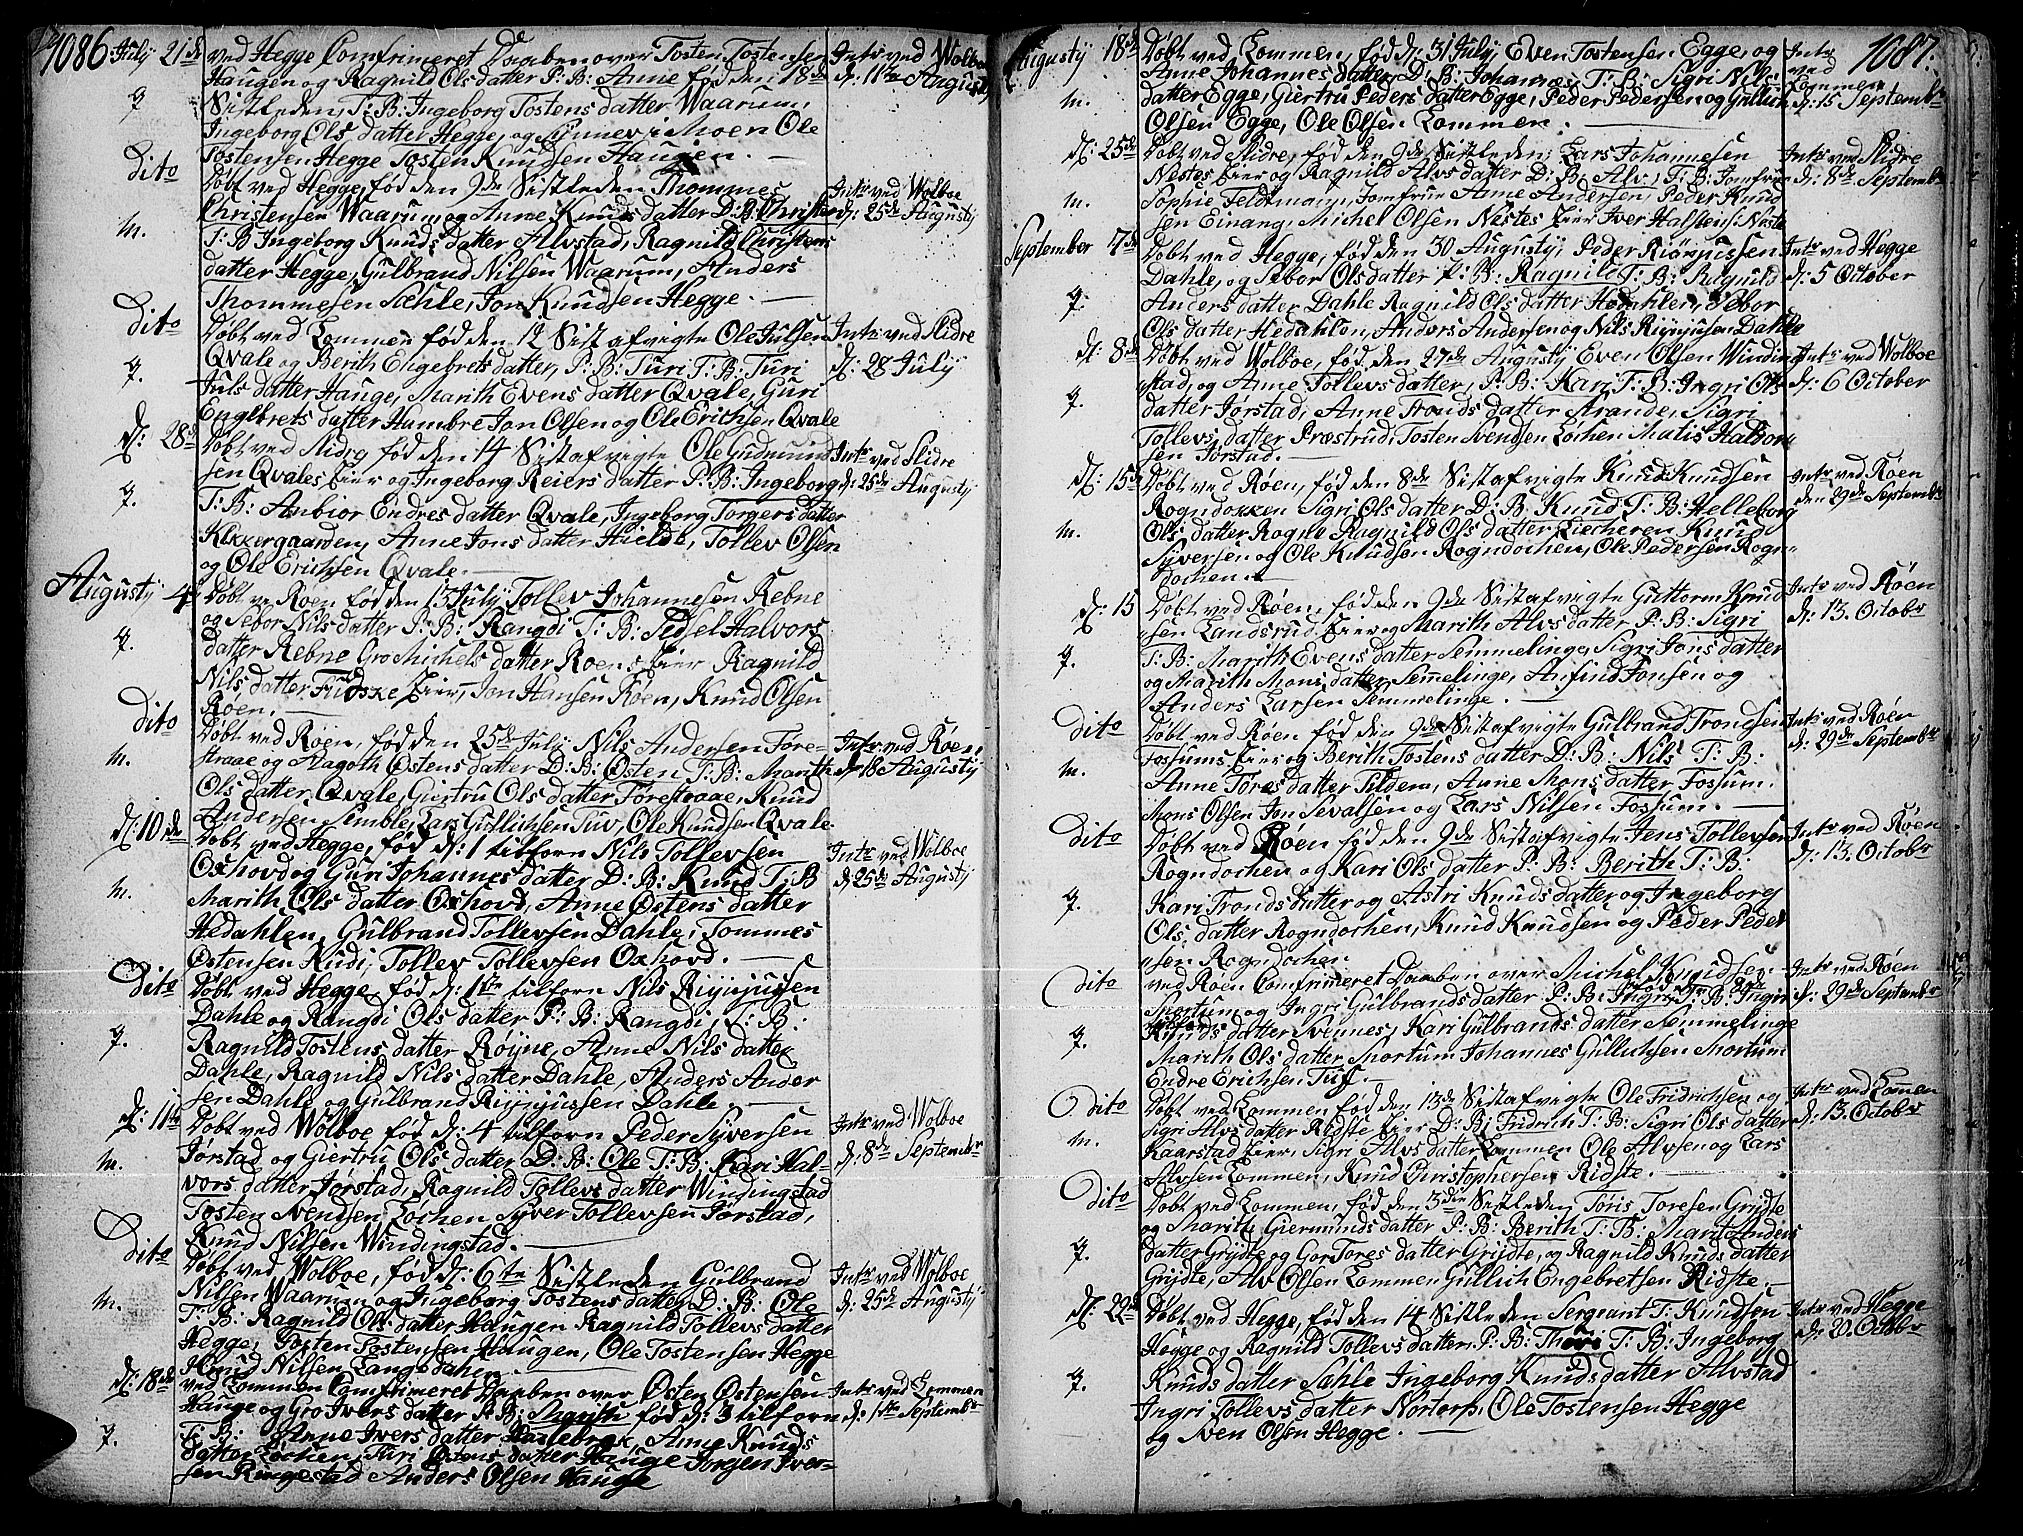 1086
July 21de
ved Hegge Comfrimeret Daaben over Tosten Tostensen
Haugen og Ragnild Ols datter P: B: Anne fød den 18de
Sistleden, T: B: Ingeborg Tostens datter Waarum,
Ingeborg Ols datter Hegge, og Synnev i Moen Ole
Tostensen Hegge Tosten Knudsen Haugen.
Intr ved Wolboe
d: 11te Augusty
q
dito
Døbt ved Hegge, fød den 9de Sistleden Thommes
Christensen Waarum og Anne Knuds datter D: B: Christen
T: B Ingeborg Knuds datter Alvstad, Ragnild Christens
datter Hegge, Gulbrand Nilsen Waarum, Anders
Thommesen Sæhle, Jon Knudsen Hegge.
Intr ved Wolboe
d: 25de Augusty
m.
Dito
Døbt ved Lommen fød den 12 Sist afvigte Ole Julsen
Qvale og Berith Engebrets datter, P: B: Turi T: B: Turi
Juls datter Hauge, Marith Evens datter Qvale, Guri
Engebrets datter Hambre Jon Olsen og Ole Erichsen Qvale
Intr ved Slidre
d: 28 July
q.
d: 28de
Døbt ved Slidre fød den 14 Sistafvigte Ole Gudmund
sen Qvales Eier og Ingeborg Reiers datter P: B: Ingeborg
T: B: Anbior Endres datter Qvale, Ingeborg Torgers datter
Klokkergaarden, Anne Jons datter Hielde, Tollev Olsen
og Ole Erichsen Qvale.
Intr ved Slidre
d: 25de Augusty
q.
Augusty 4de
Døbt ve Røen fød den 13 July Tollev Johannesen Rebne
og Sebor Nils datter P: B: Rangdi T: B: Sidsel Halvors
datter Rebne Gro Michels datter Roens Eier Ragnild
Nils datter Fuoske Eier, Jon Hansen Røen, Knud Olsen
Røen.
q.
dito
Døbt ved Røen, fød den 25de July Nils Andersen Føre-
straae og Aagoth Østens datter D: B: Østen T: B: Marith
Ols datter Qvale, Giertru Ols datter Førestraae, Knud
Andersen Semble, Lars Gullichsen Tuv, Ole Knudsen Qvale
Intr ved Røen
d: 18 Augusty
m.
d: 10de
Døbt ved Hegge, fød d: 1 tilforn Nils Tollevsen
Oxhovd og Guri Johannes datter D: B: Knud T: B
Marith Ols datter Oxhovd, Anne Østens datter
Hedahlen, Gulbrand Tollevsen Dahle, Tommes
Østensen Rudi, Tollev Tollevsen Oxhovd.
Intr ved Wolboe
d: 25de Augusty
m.
Dito
Døbt ved Hegge, fød d: 1te tilforn Nils
Dahle og Rangdi Ols datter P: B: Rangdi, T: B:
Ragnild Tostens datter Røyne, Anne Nils datter
Dahle, Ragnild Nils datter Dahle, Anders Ander
sen Dahle og Gulbrand Dahle.
q.
d: 11te
Døbt ved Wolboe fød d: 4 tilforn Peder Syversen
Jørstad og Giertru Ols datter D: B: Ole T: B: Kari Hal-
vors datter Jørstad, Ragnild Tollevs datter Windingstad
Tosten Svendsen Lochen Syver Tollevsen Jørstad,
Knud Nilsen Windingstad.
Intr ved Wolboe
d: 8de Septembr
m.
Dito
Døbt ved Wolboe, fød d: 6te Sistleden Gulbrand
Nilsen Waarum og Ingeborg Tostens datter D: B: Ole
T: B: Ragnild Ols datter Haugen Ragnild Tollevs datter
Hegge, Tosten Tostensen Haugen, Ole Tostensen Hegge
Knud Nilsen Langedahn
Intr ved Wolboe
d: 25de Augusty
m.
d: 18de
ved Lommen Comfrimeret Daaben over Østen Østensen
Hauge og Gro Ivers datter P: B: Marith fød d: 3 tilforn
T: B: Anne Ivers datter Anne Knuds
datter Lochen, Turi Østens datter Hauge Jørgen Iver-
sen Ringestad Anders Olsen Hauge
Intr ved Lommen
d: 1ste Septembr
q.
1087.
Augusty 18de
Døbt ved Lommen, fød d: 31 July, Even Tostensen Egge, og
Anne Johannes datter D: B: Johannes T: B: Sigri Nils
datter Egge, Giertru Peders datter Egge, Peder Pedersen og Gullich
Olsen Egge, Ole Olsen Lommen.
Intr ved
Lommen
d: 15 Septembr
m.
d: 25de
Døbt ved Slidre, fød den 9de Sistleden, Lars Johannesen
Nestes Eier og Ragnild Alvs datter D: B: Alv, T: B: Jomfrue
Sophie Feldtmann, Jomfrue Anne Andersen, Peder Knud
sen Einang, Michel Olsen Nestes Eier Iver Halstens: Neste
Intr ved Slidre
d: 8de Septembr
m.
September 7de
Døbt ved Hegge, fød den 30 Augusty, Peder
Dahle, og Sebor Ols datter P: B: Ragnild T: B: Ragnild
Anders datter Dahle Ragnild Ols datter Hedahlen, Sebor
Ols datter Hedahlen, Anders Andersen og Nils Dahle
Intr ved Hegge
d: 5 October
q.
d: 8de
Døbt ved Wolboe, fød den 27de Augusty Even Olsen Winding
stad, og Anne Tollevs datter, P: B: Kari T: B: Ingri Ols
datter Jørstad, Anne Tronds datter Strande, Sigri
Tollevs datter Præstrud, Tosten Svendsen Lochen Matis Halvor
sen Jørstad.
Intr ved Wolboe
d: 6 October
q.
d: 15de
Døbt ved Røen, fød den 8de Sistafvigte Knud Knudsen
Rogndokken Sigri Ols datter D: B: Knud T: B: Helleborg
Ols datter Rogne Ragnild Ols datter Knud
Syversen og Ole Knudsen Rogndochen, Ole Pedersen Rogn-
dochen.
Intr ved Røen
den 29de Septembr
m.
d: 15
Døbt ved Røen, fød den 9de Sistafvigte Guttorm Knud
sen Landsrud Eier og Marith Alvs datter P: B: Sigri
T: B: Marith Evens datter Semmelinge, Sigri Jons datter
og Marith Mons datter Semelinge, Anfind Jonsen og
Anders Larsen Semmelinge.
Intr ved Røen
d: 13. Octobr
q.
Dito
Døbt ved Røen fød den 9de Sistafvigte Gulbrand Trondsen
Fossums Eier og Berith Tostens datter D: B: Nils T: B:
Anne Tores datter Tildem, Anne Mons datter Fossum.
Mons Olsen Jon Sevalsen og Lars Nilsen Fossum.
Intr ved Røen
d: 29de Septembr
m.
Dito
Døbt ved Røen fød den 9de Sistafvigte Jens Tollevsen
Rogndochen og Kari Ols datter P: B: Berith T: B:
Kari Tronds datter og Astri Knuds datter og Ingeborg
Ols datter Rogndochen, Knud Knudsen og Peder Peder
sen Rogndochen
Intr ved Røen
d: 13. Octobr
q.
Dito
ved Røen Comfrimeret Daaben over Michel Knudsen
Mortum og Ingri Gulbrands datter P: B: Ingri T: B: Ingri
Knuds datter Svennes, Kari Gulbrands datter Semmelinge
Marith Ols datter Mortum Johannes Gullichsen Mortum
Endre Erichsen Tuf.
Intr ved Røen
d: 29de Septembr
q.
Dito
Døbt ved Lommen fød den 13de Sistafvigte Ole Fridrichsen og
Sigri Alvs datter Ridste Eier D: B: Fridrich T: B: Sigri Ols datter
Kaarstad Eier, Sigri Alvs datter Lommen Ole Alvsen og Lars
Alvsen Lommen, Knud Christophersen Ridste.
Intr ved Lomen
d: 13. Octobr
m.
Dito
Døbt ved Lommen, fød den 13de Sistleden Toris Toresen Grydte
og Marith Giermunds datter P: B: Berith T: B: Marit Anders
datter Grydte og Gor Tores datter Grydte, og Ragnild Knuds datter
Grydte, Alv Olsen Lommen Gullich Engebretsen Ridste.
q.
d: 22de
Døbt ved Hegge, fød den 14 Sistleden Sergeant T: Knudsen
Høyge og Ragnild Tollevs datter P: B: T: B: Ingeborg
Knuds datter Sæhle Ingeborg Knuds datter Alvstad
Ingri Tollevs datter Nortorp, Ole Tostensen Hegge
og Sven Olsen Hegge.
Intr ved Hegge
d: 20 Octobr
q.